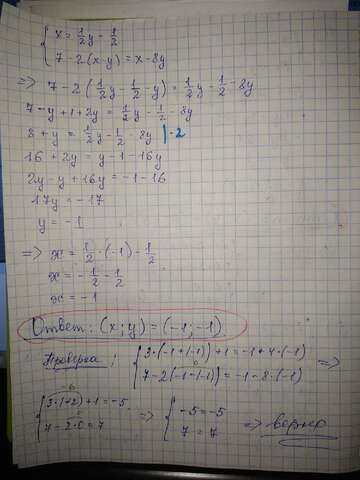 { x = 1/2 y - 1/2
7 - 2(x-y) = x - 8y
=> 7 - 2(1/2 y - 1/2 - y) = 1/2 y - 1/2 - 8y
7 - y + 1 + 2y = 1/2 y - 1/2 - 8y
8 + y = 1/2 y - 1/2 - 8y |·2
16 + 2y = y - 1 - 16y
2y - y + 16y = -1 - 16
17y = -17
y = -1
=> x = 1/2 · (-1) - 1/2
x = -1/2 - 1/2
x = -1
Ответ: (x; y) = (-1; -1)
Проверка: { 3·(-1+(-1)) + 1 = -1 + 4·(-1) =>
7 - 2(-1-(-1)) = -1 - 8·(-1)
{ 3·(-2) + 1 = -5 => { -5 = -5
7 - 2·0 = 7 7 = 7 => верно